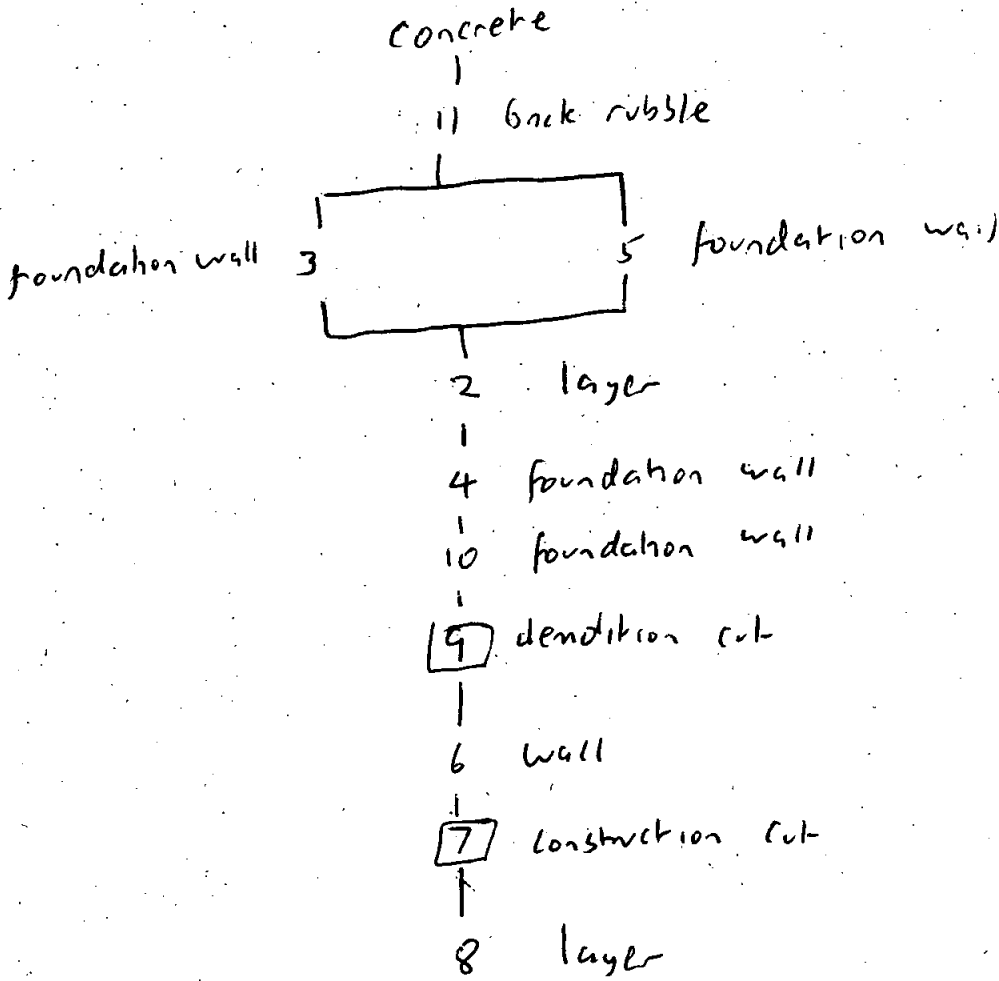 concrete
11 brick rubble
foundation wall 3 5 foundation wall
2 layer
4 foundation wall
10 foundation wall
9 demolition cut
6 wall
7 construction cut
8 layer